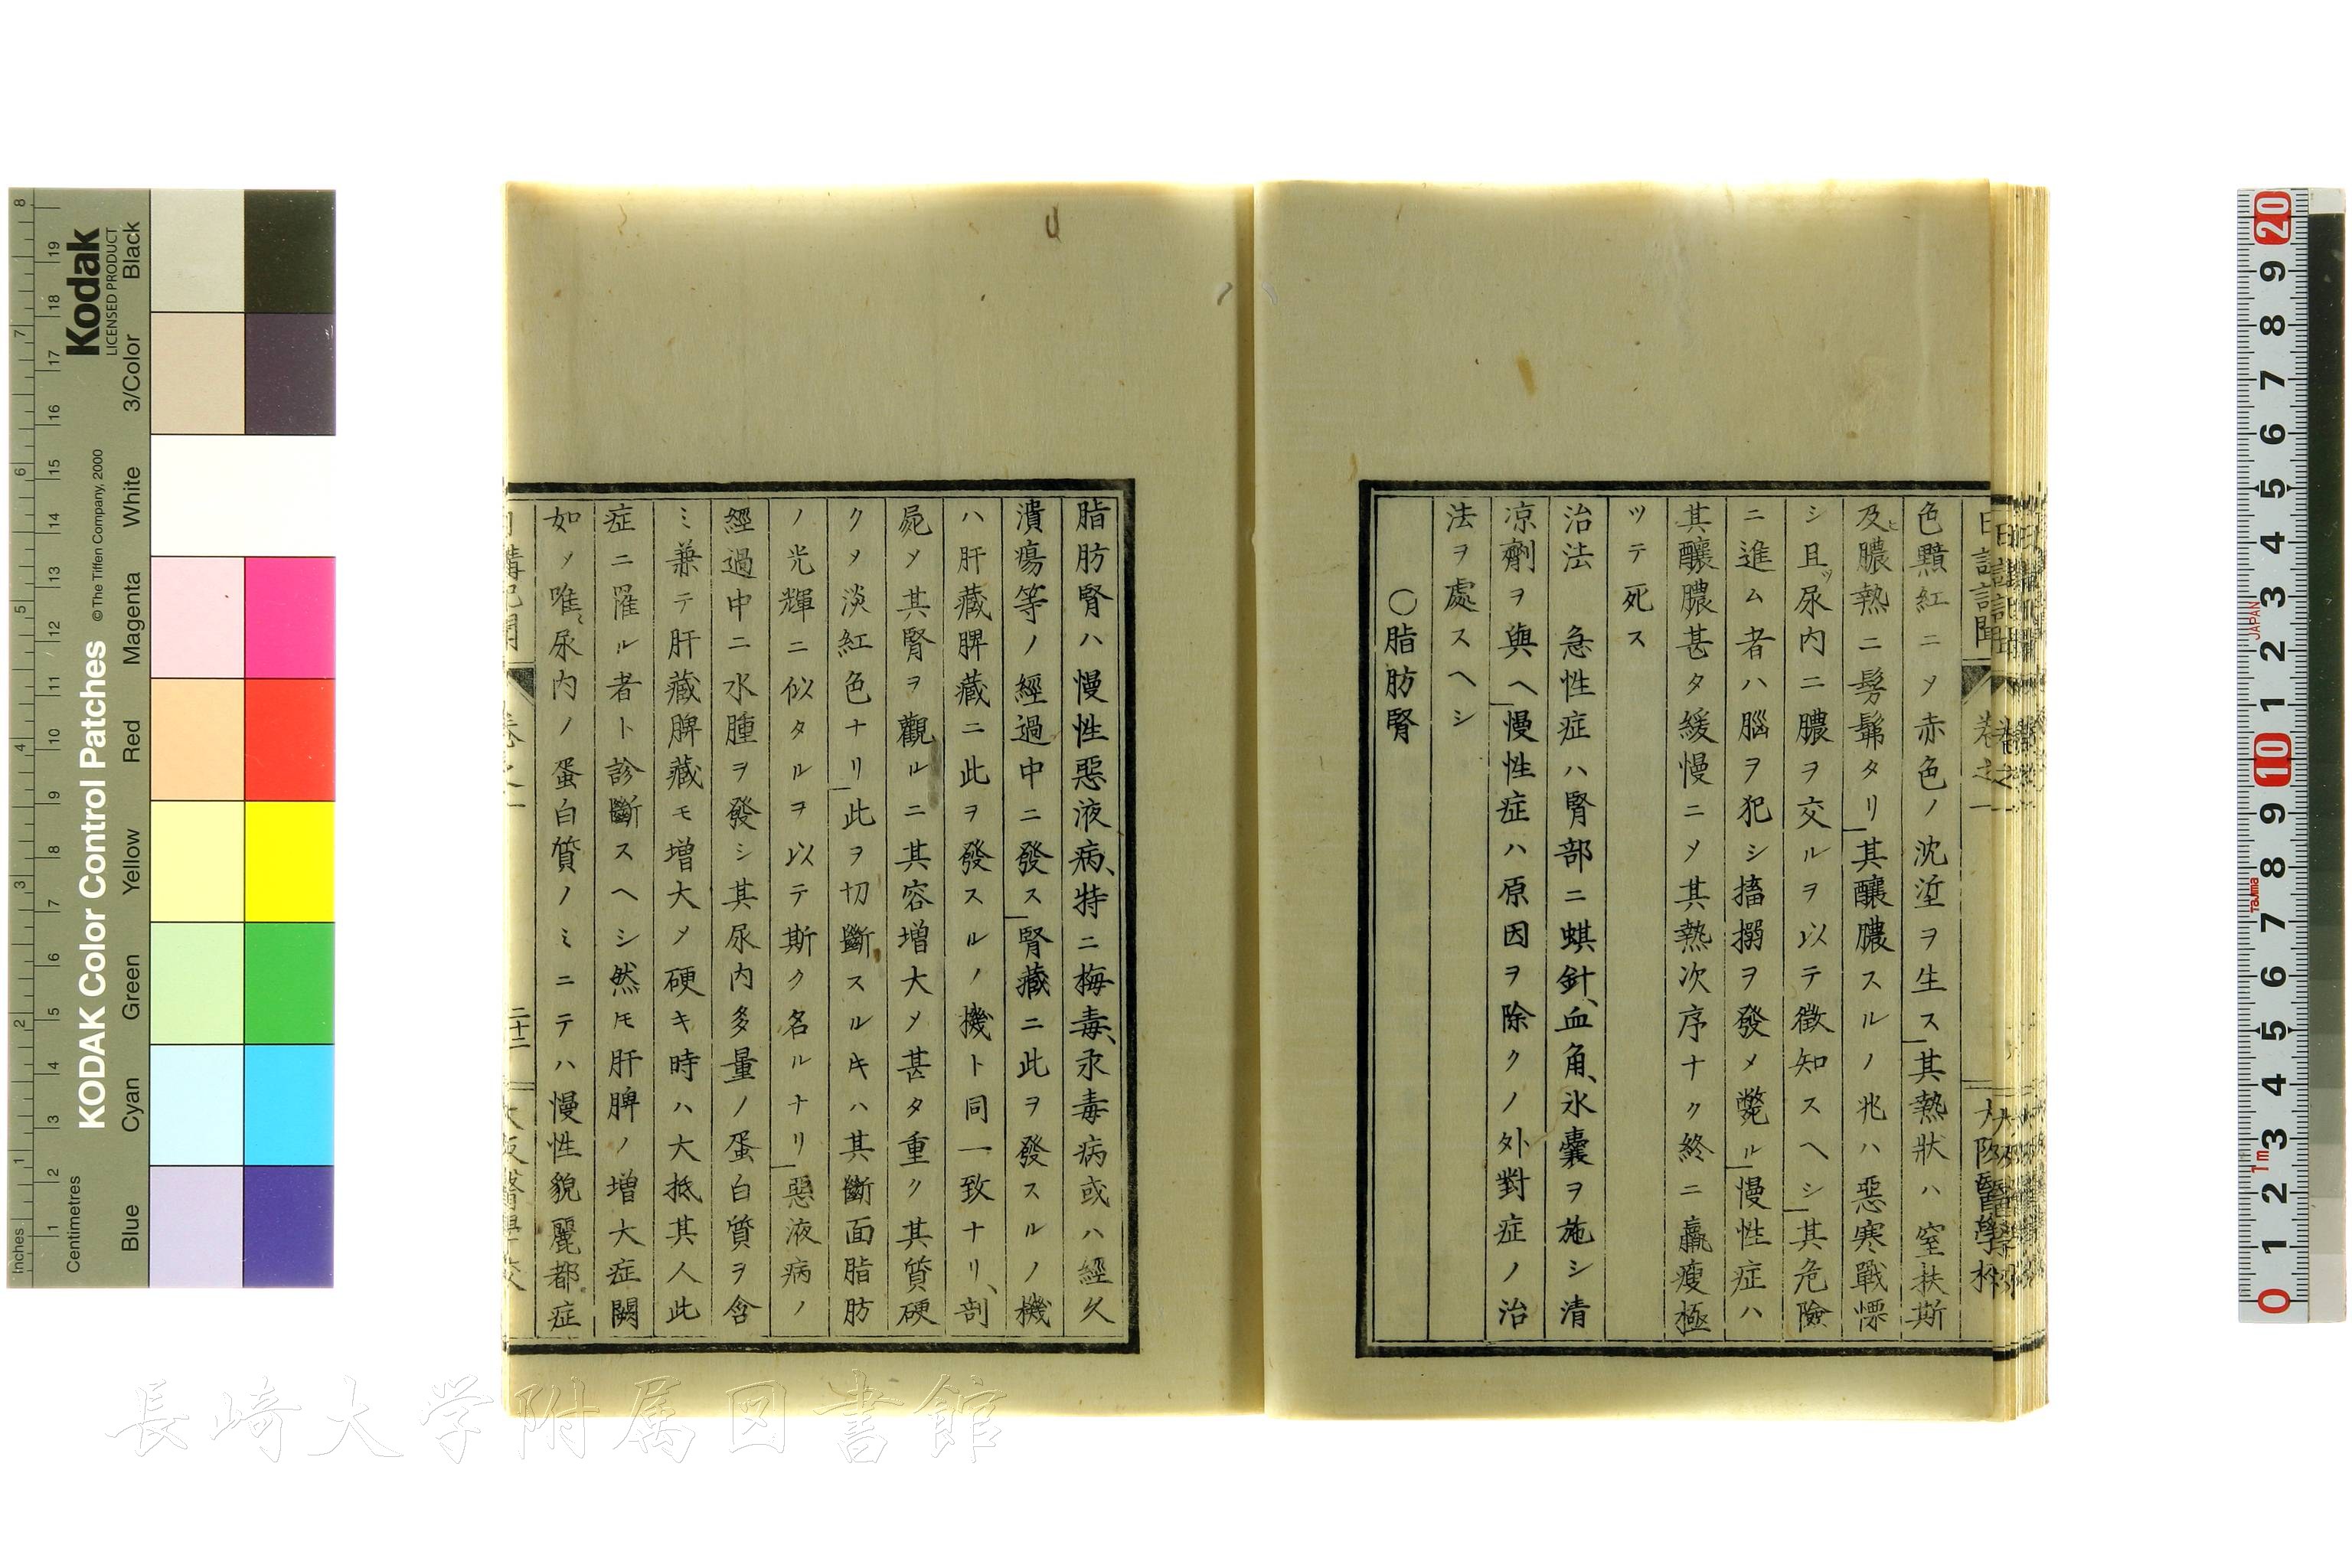 色黯紅ニメ赤色ノ沈垽ヲ生ス」其熱狀ハ窒扶斯
及ヒ膿熱ニ髣髴タリ」其釀膿スルノ兆ハ惡寒戰慄
シ且ツ尿内ニ膿ヲ交ルヲ以テ徴知スヘシ」其危險
ニ進ム者ハ腦ヲ犯シ搐搦ヲ發メ斃ル」慢性症ハ
其釀膿甚タ緩慢ニメ其熱次序ナク終ニ羸瘦極
ツテ死ス
治法 急性症ハ腎部ニ蜞針、血角、氷嚢ヲ施シ清
凉劑ヲ與ヘ」慢性症ハ原因ヲ除クノ外對症ノ治
法ヲ處スヘシ
〇脂肪腎
脂肪腎ハ慢性惡液病、特ニ梅毒、汞毒病或ハ經久
潰瘍等ノ經過中ニ發ス」腎藏ニ此ヲ發スルノ機
ハ肝藏脾藏ニ此ヲ發スルノ機ト同一致ナリ、剖
屍メ其腎ヲ觀ルニ其容増大メ甚タ重ク其質硬
クメ淡紅色ナリ」此ヲ切斷スルキハ其斷面脂肪
ノ光輝ニ似タルヲ以テ斯ク名ルナリ」惡液病ノ
經過中ニ水腫ヲ發シ其尿内多量ノ蛋白質ヲ含
ミ兼テ肝藏脾藏モ増大メ硬キ時ハ大抵其人此
症ニ罹ル者ト診斷スヘシ然モ肝脾ノ増大症闕
如メ唯、尿内ノ蛋白質ノミニテハ慢性貌麗都症
二十二
長崎大学附属図書館
Inches
Centimetres
KODAK Color Control Patches
© The Tiffen Company, 2000
Kodak
LICENSED PRODUCT
Blue Cyan Green Yellow Red Magenta White 3/Color Black
JAPAN
Tajima
1m